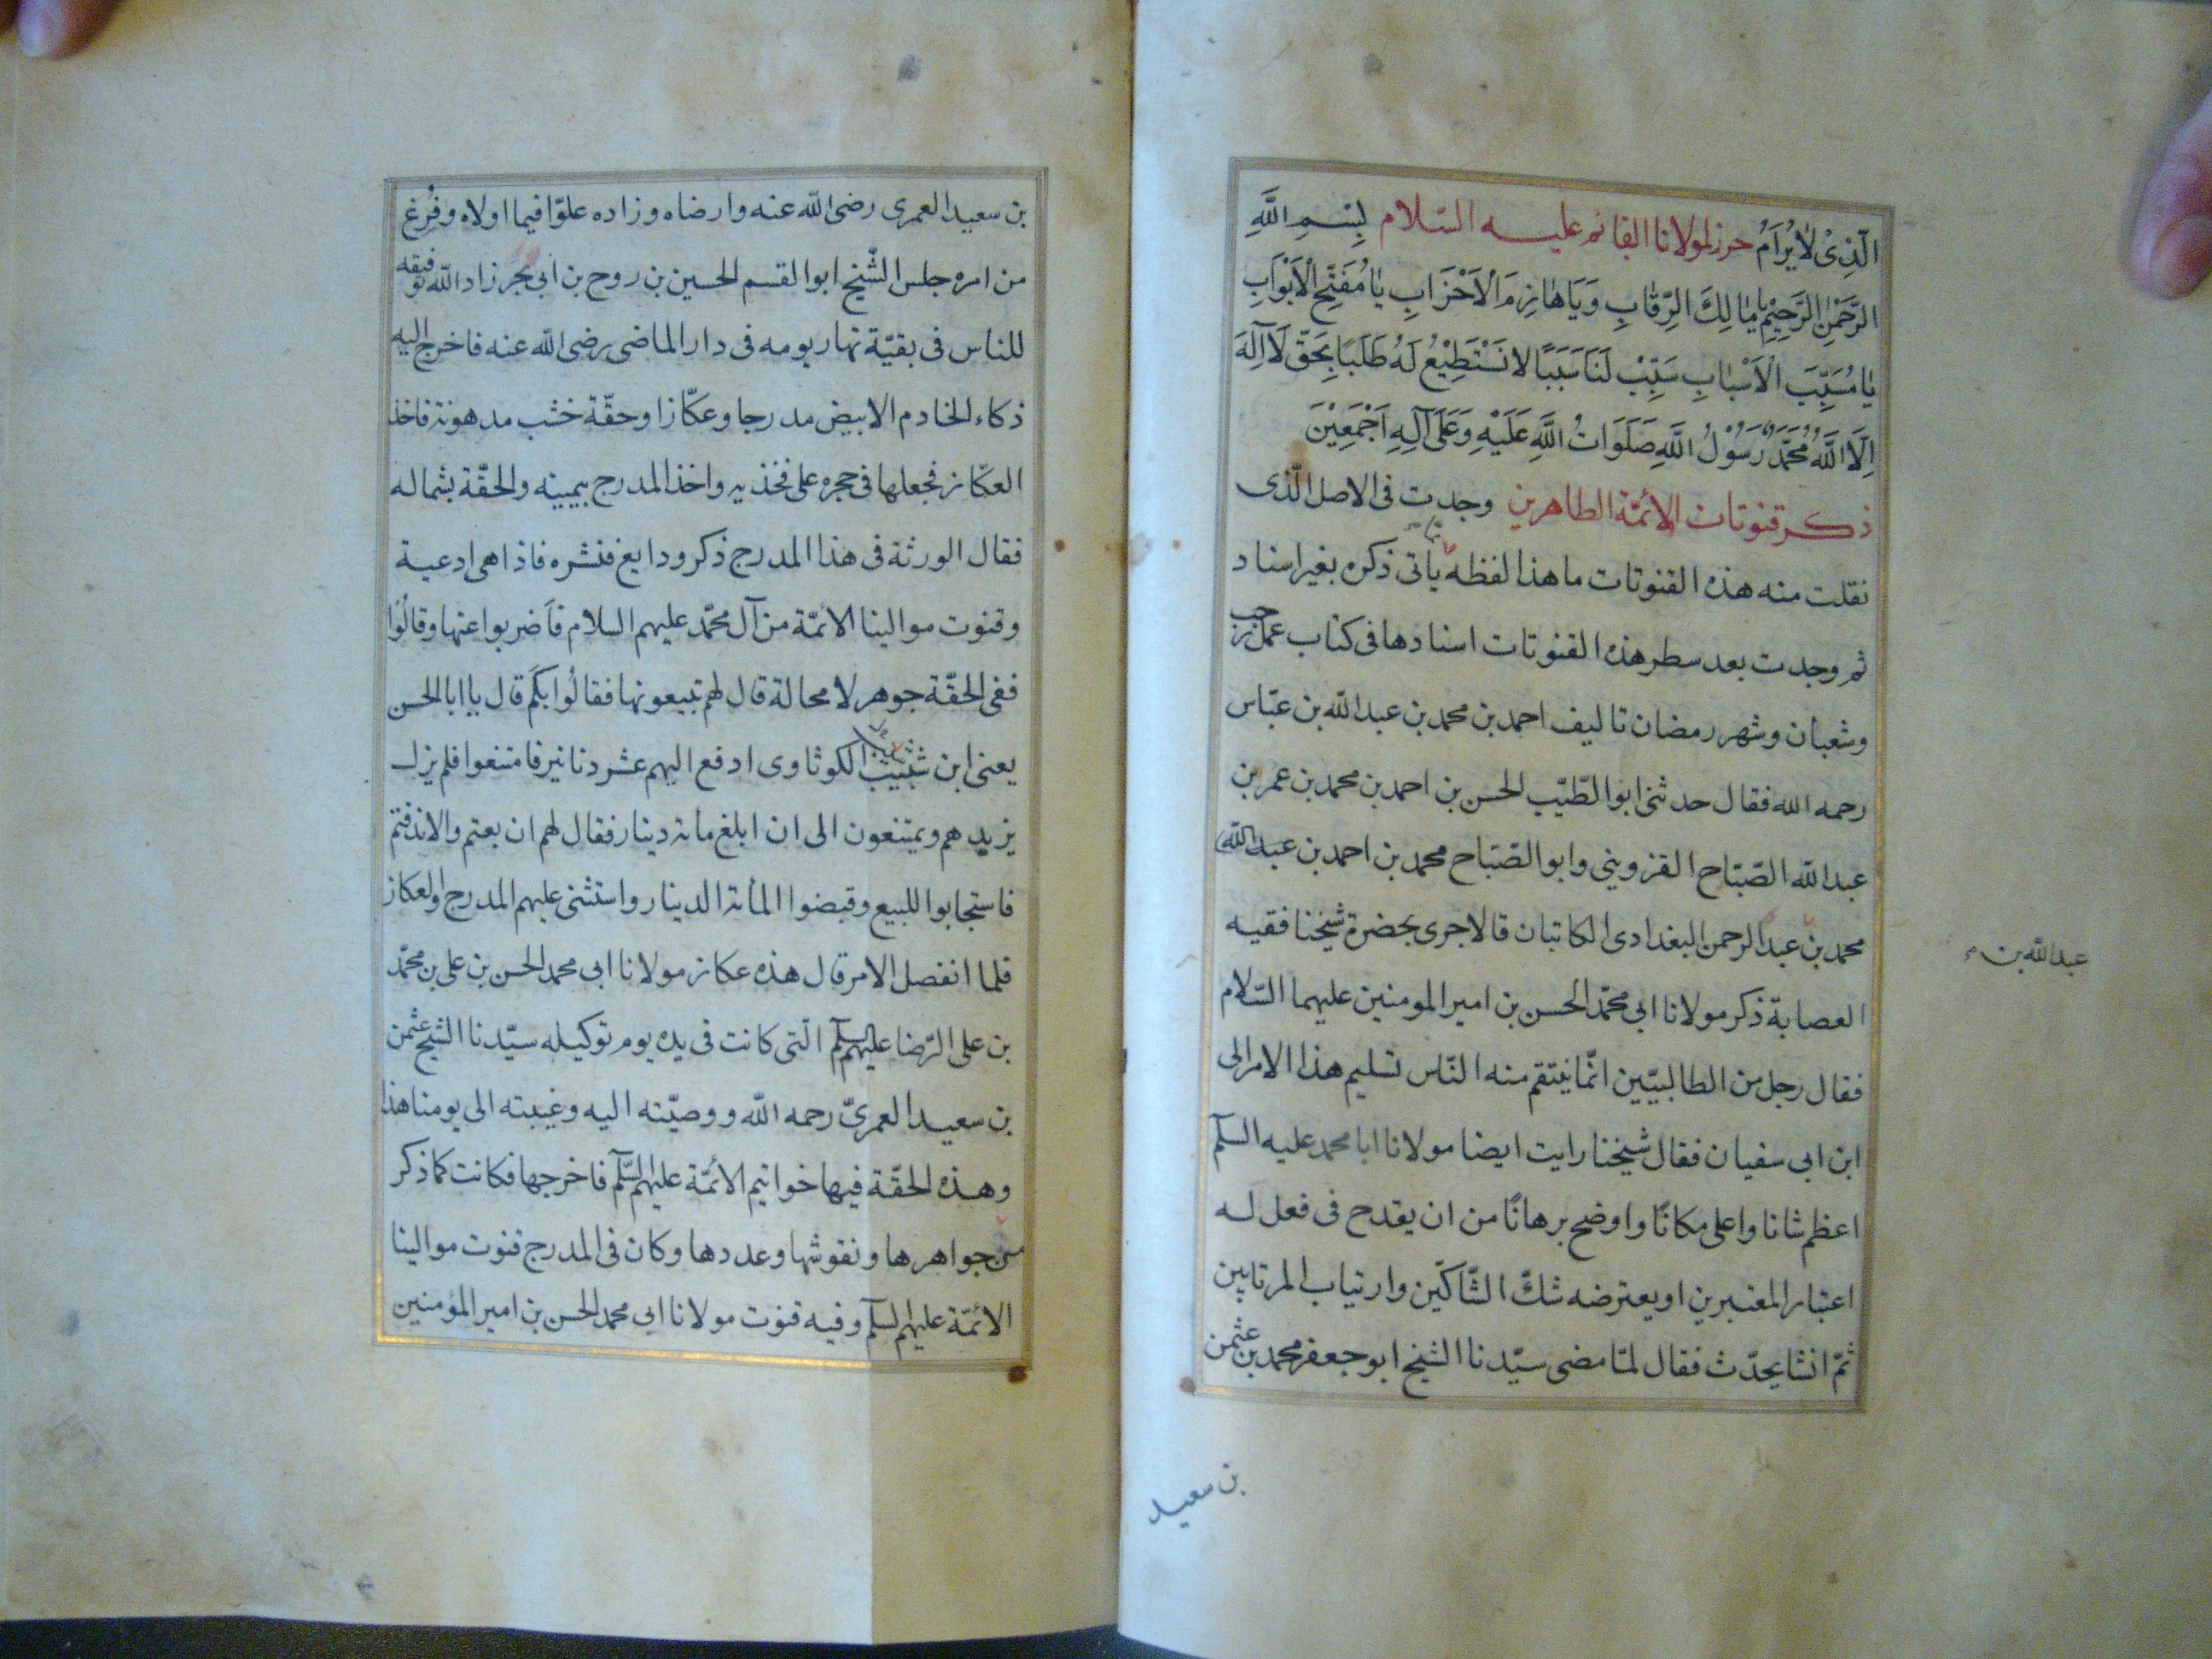 الَّذِیْ لاٰ یُرَامُ حرز لمولانا القائم علیه السّلام بِسْمِ اللَّهِ
الرَّحْمٰنِ الرَّحِیْمِ یٰا مٰالِكَ الرِّقٰابِ وَیَا هٰازِمَ الْاَحْزَابِ یٰا مُفَتِّحَ الْاَبْوَابِ
یٰا مُسَبِّبَ الْاَسْبٰابِ سَبِّبْ لَنَا سَبَبًا لا نَسْتَطِیْعُ لَهُ طَلَبًا بِحَقِّ لَا آلِهَ
اِلَّا اللَّهُ مُحَمَّدٌ رَسُوْلُ اللَّهِ صَلَوَاتُ اللَّهِ عَلَیْهِ وَعَلَی آلِهِ اَجْمَعِیْنَ
ذکر قنوتات الائمّة الطاهرین وجدت فی الاصل الّذی
نقلت منه هذه القنوتات ما هذا لفظه یأتی ذکره بغیر اسناد
ثم وجدت بعد سطر هذه القنوتات اسنادها فی کتاب عمل رجب
وشعبان وشهر رمضان تالیف احمد بن محمد بن عبد اللّه بن عبّاس
رحمه الله فقال حدثنی ابو الطّیّب الحسن بن احمد بن محمد بن عمر بن
عبد اللّه الصّبّاح القزوینی وابو الصّبّاح محمد بن احمد بن عبد اللّه
محمد بن عبد الرحمن البغدادی الکاتبان قالا جری بحضرة شیخنا فقیه
عبد اللّه بن
العصابة ذکر مولانا ابی محمّد الحسن بن امیر المومنین علیهما السّلام
فقال رجل من الطالبیّین انّما ینتقم منه النّاس تسلیم هذا الامر الی
ابن ابی سفیان فقال شیخنا رایت ایضا مولانا ابا محمد علیه السلم
اعظم شانا واعلی مکانًا واوضح برهانًا من ان یقدح فی فعل له
اعتبار المعتبرین او یعترضه شكّ الشّاکّین وارتیاب المرتابین
ثمّ انشا یحدّث فقال لمّا مضی سیّدنا الشیخ ابو جعفر محمد بن عثمن
بن سعید
بن سعید العمری رضی اللّه عنه وارضاه وزاده علوّا فیما اولاه وفُرِغ
من امره جلس الشّیخ ابو القسم الحسین بن روح بن ابی بحر زاد اللّه توفیقه
للناس فی بقیّة نهار یومه فی دار الماضی رضی اللّه عنه فاخرج الیه
ذکاء الخادم الابیض مدرجا وعکّازا وحقّة خشب مدهونة فاخذ
العکّاز فجعلها فی حجره علی فخذیه واخذ المدرج بیمینه والحقّة بشماله
فقال الورثة فی هذا المدرج ذکر ودایع فنشره فاذا هی ادعیة
وقنوت موالینا الائمّة من آل محمّد علیهم السلام فَاَضربوا عنها وقالُوا
ففی الحقّة جوهر لا محالة قال لهم تبیعونها فقالُوا بکَم قال یا ابا الحسن
یعنی ابن شَبِیبْ الکوثاوی ادفع الیهم عشر دنانیر فامتنعوا فلم یزل
یزیدهم ویمتنعون الی ان ابلغ مأة دینار فقال لهم ان بعتم والا ندفتم
فاستجابوا للبیع وقبضوا المأة الدینار واستثنی علیهم المدرج والعکاز
فلما انفصل الامر قال هذه عکاز مولانا ابی محمد الحسن بن علی بن محمّد
بن علی الرّضا علیهم السلم الّتی کانت فی یده یوم توکیله سیّدنا الشیخ عثمن
بن سعید العمریّ رحمه اللّه ووصیّته الیه وغیبته الی یومنا هذا
وهذه الحقّة فیها خواتیم الائمّة علیهم السّلم فاخرجها فکانت کما ذکر
من جواهرها ونقوشها وعددها وکان فی المدرج قنوت موالینا
الائمّة علیهم السلم وفیه قنوت مولانا ابی محمد الحسن بن امیر المؤمنین